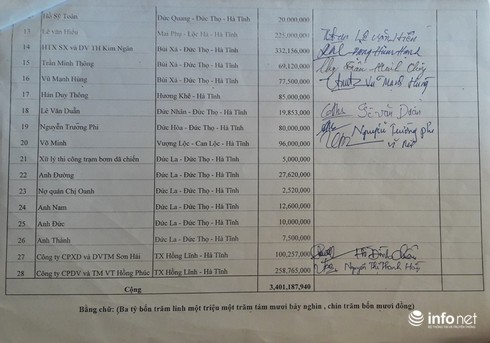 Hồ Sỹ Toàn Đức Quang - Đức Thọ - Hà Tĩnh 20,000,000
13 Lê văn Hiền Mai Phụ - Lộc Hà - Hà Tĩnh 225,000,000 Lê văn Hiền
14 HTX SX và DV TH Kim Ngân Bùi Xá - Đức Thọ - Hà Tĩnh 332,156,000
15 Trần Minh Thông Bùi Xá - Đức Thọ - Hà Tĩnh 69,120,000
16 Vũ Mạnh Hùng Bùi Xá - Đức Thọ - Hà Tĩnh 77,500,000 Vũ Mạnh Hùng
17 Hán Duy Thông Hương Khê - Hà Tĩnh 85,000,000
18 Lê Văn Duẫn Đức Nhân - Đức Thọ - Hà Tĩnh 19,853,000 Lê văn Duẫn
19 Nguyễn Trường Phi Đức Hòa - Đức Thọ - Hà Tĩnh 80,000,000 Nguyễn Trường phi
20 Võ Minh Vượng Lộc - Can Lộc - Hà Tĩnh 96,000,000
21 Xử lý thi công trạm bơm dã chiến Đức La - Đức Thọ - Hà Tĩnh 5,000,000
22 Anh Đường Đức La - Đức Thọ - Hà Tĩnh 27,620,000
23 Nợ quán Chị Oanh Đức La - Đức Thọ - Hà Tĩnh 2,520,000
24 Anh Nam Đức La - Đức Thọ - Hà Tĩnh 12,600,000
25 Anh Đức Đức La - Đức Thọ - Hà Tĩnh 10,000,000
26 Anh Thành Đức La - Đức Thọ - Hà Tĩnh 7,500,000
27 Công ty CPXD và DVTM Sơn Hải TX Hồng Lĩnh - Hà Tĩnh 100,257,000
28 Công ty CPDV và TM VT Hồng Phúc TX Hồng Lĩnh - Hà Tĩnh 258,765,000 Nguyễn Thị Thanh
Cộng 3,401,187,940
Bằng chữ: (Ba tỷ bốn trăm linh một triệu một trăm tám mươi bảy nghìn , chín trăm bốn mươi đồng)
infonet